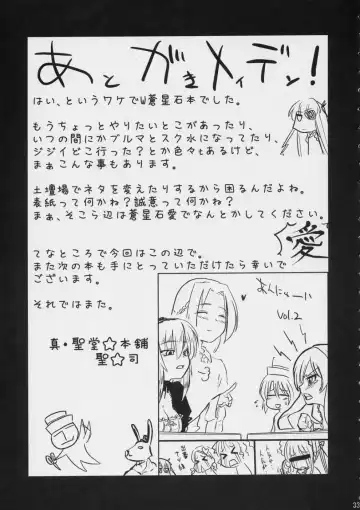 あとがきメイデン!
はい、というワケでW蒼星石本でした。
もうちょっとやりたいとこがあったり、
いつの間にかブルマとスク水になってたり、
ジジイどこ行った?とか色々もあるけど、
まぁこんな事もあります。
土壇場でネタを変えたりするから困るんだよね。
表紙って何か?誠意って何か?
まぁ、そこら辺は蒼星石愛でなんとかしてください。
愛
てなところで今回はこの辺で。
また次の本も手にとっていただけたら幸いで
ございます。
それではまた。
真・聖堂☆本舗
聖☆司
あんにゅ〜い
vol.2
33